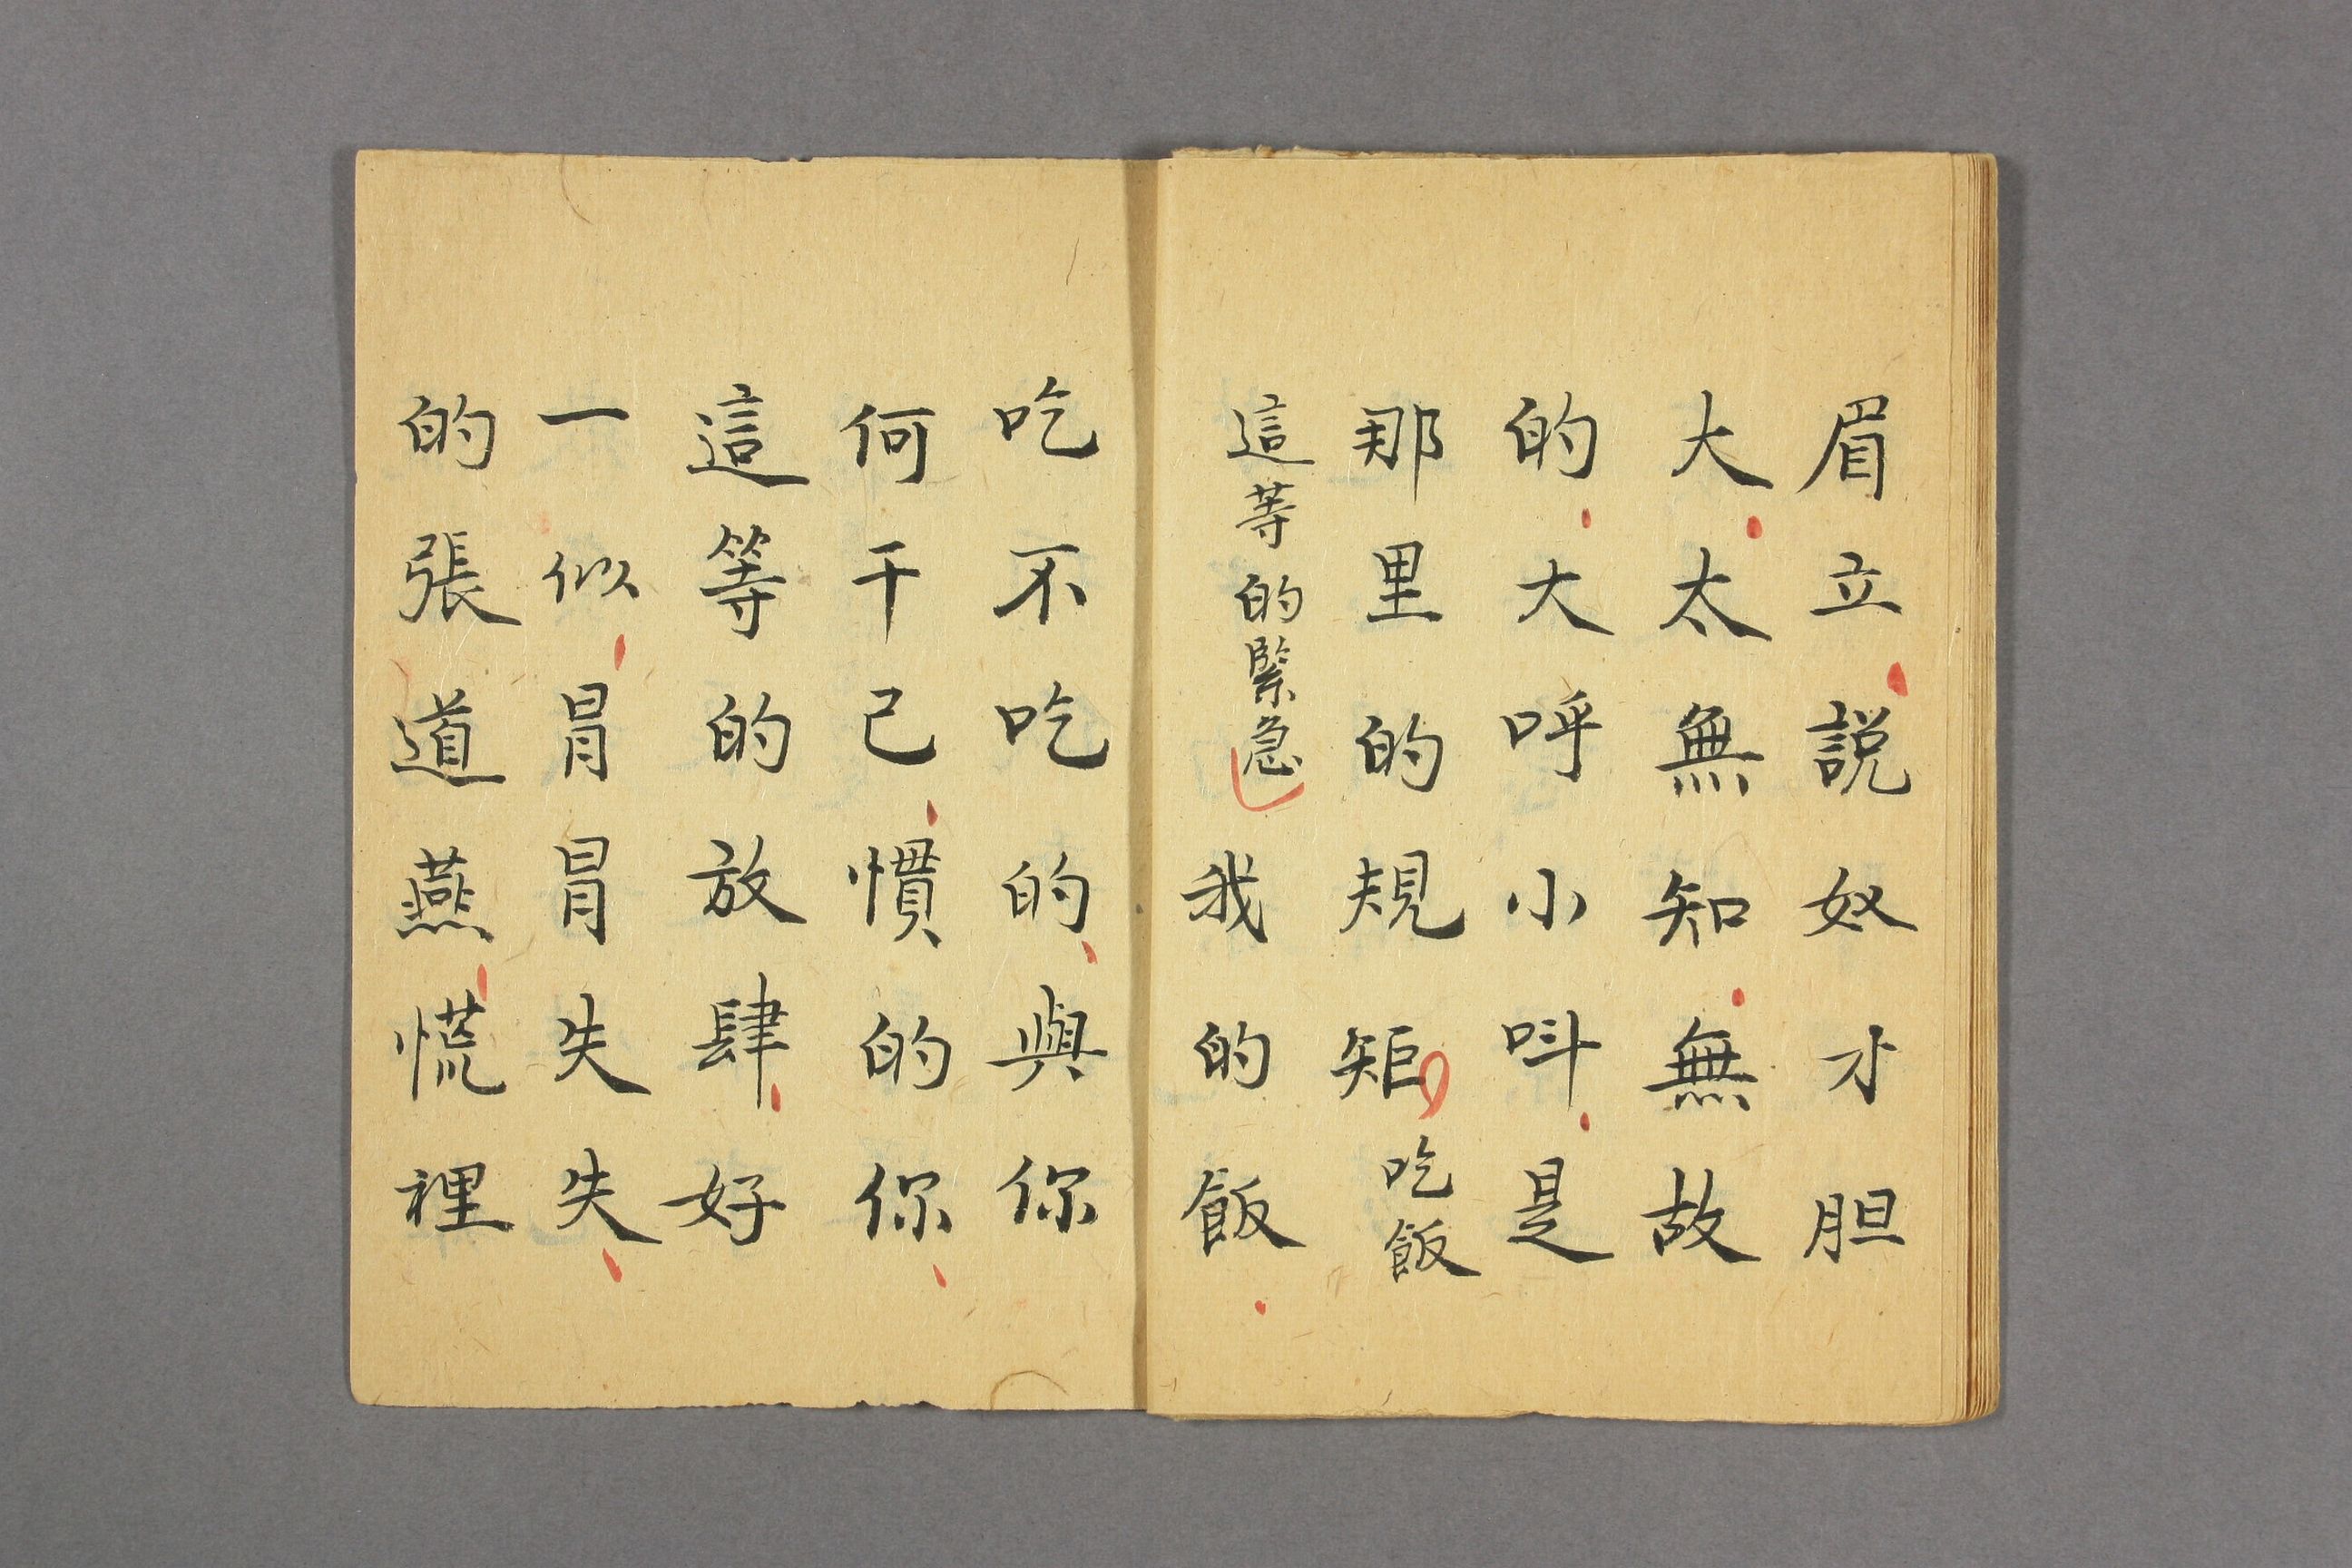 眉立説奴才胆
大太無知無故
的大呼小呌是
那里的規矩吃飯
這等的緊急我的飯
吃不吃的與你
何干已慣的你
這等的放肆好
一似冒冒失失
的張道燕慌裡